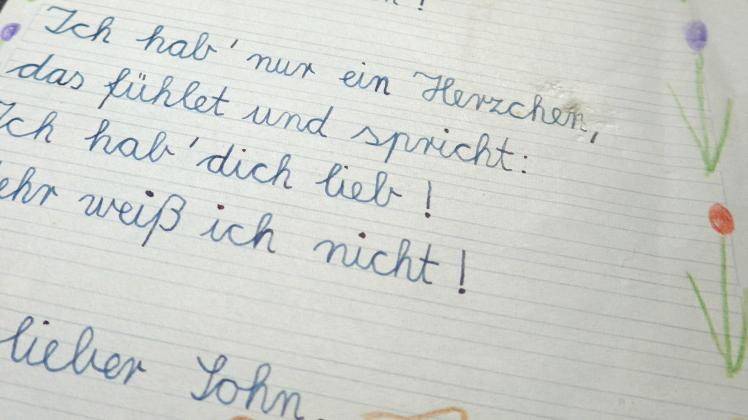 !
Ich hab' nur ein Herzchen,
das fühlet und spricht:
Ich hab' dich lieb!
ehr weiß ich nicht!
lieber Sohn.